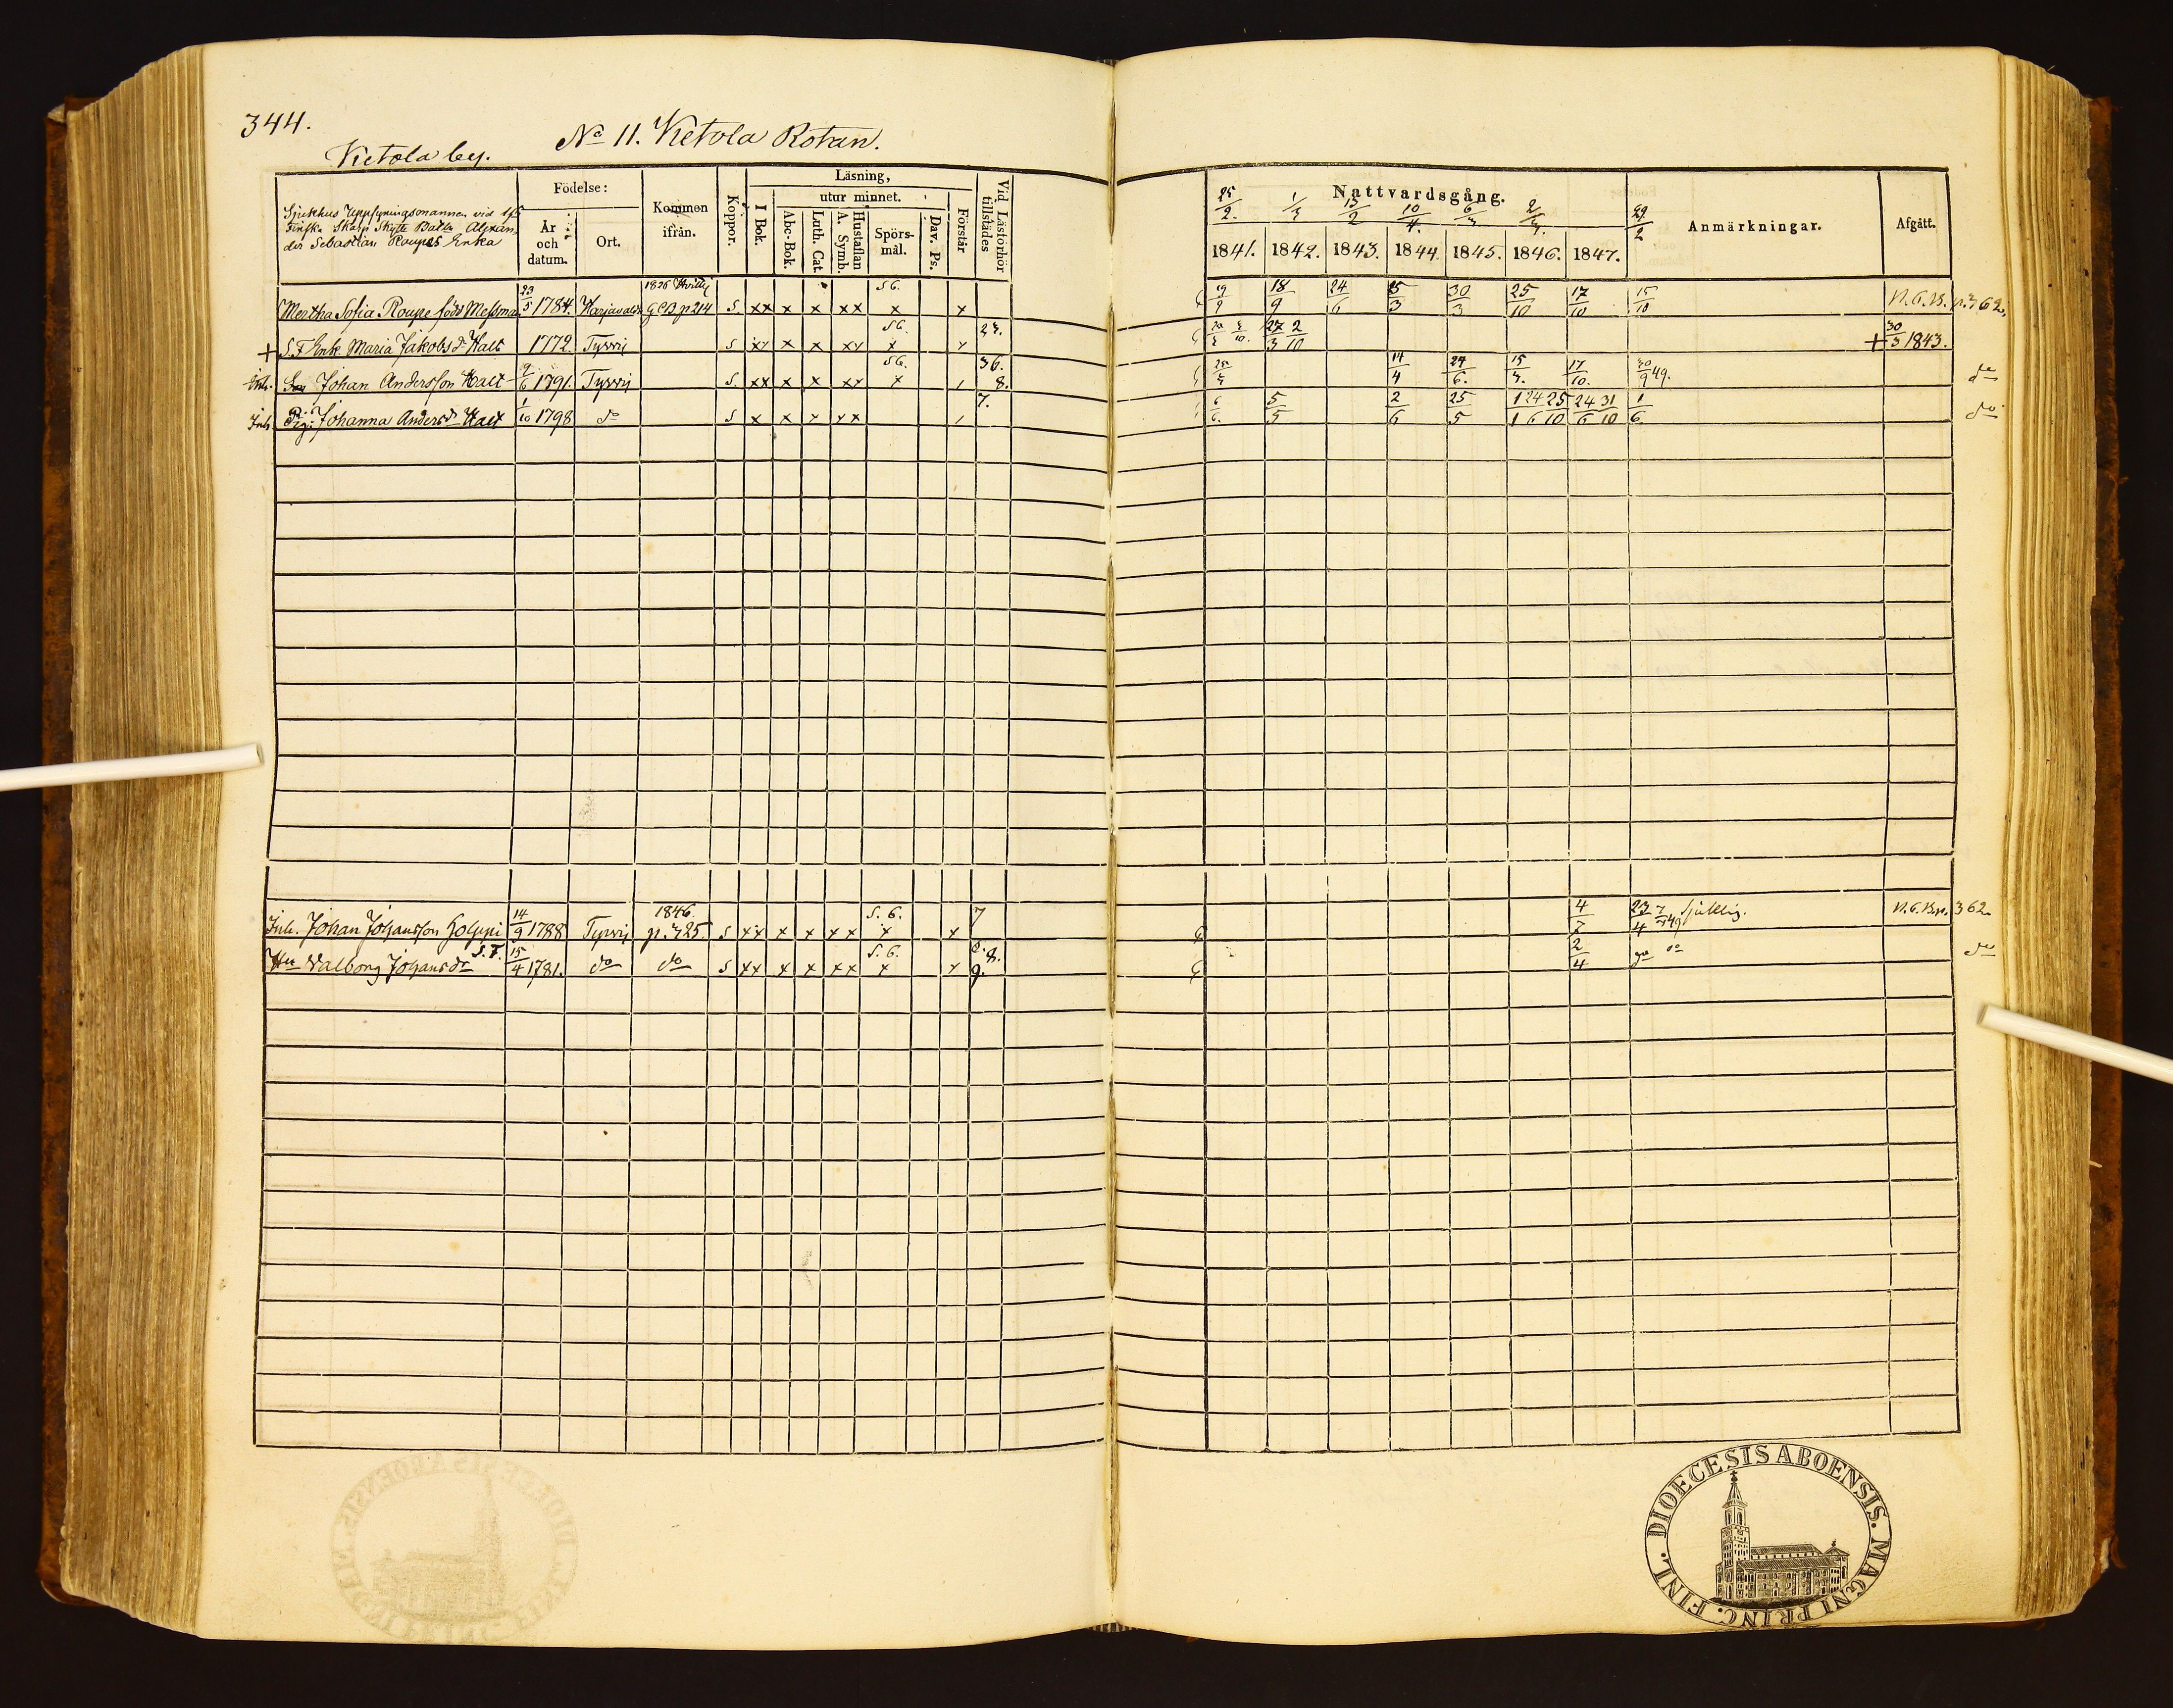 344.
Kietola by.
No 11. Kietola Rotan.
Sjukhus Uppsyningsmannen vid
Finska Skarp Skytte Batln Alexander
Sebastian Roupes Enka
Födelse:
År och datum.
Ort.
Kommen ifrån.
Koppor.
Läsning,
I Bok.
utur minnet.
Abc-Bok.
Luth. Cat.
Hustaflan A. Symb.
Spörsmål.
Dav. Ps.
Förstår
Vid Läsförhör tillstädes
25/2. 1/3 15/2 10/4. 6/3 2/3. 29/2
Nattvardsgång.
1841. 1842. 1843. 1844. 1845. 1846. 1847.
Anmärkningar.
Afgått.
Mertha Sofia Roupe född Messman 23/5 1784. Harjavalda 1836 G C B p 214 S. xx x x xx S6. x x 18/9 24/6 25/3 30/3 25/10 17/10 15/10 N. C. B. p. 362.
+ S. F. Enk. Maria Jakobsdr Kalt 1772. Tyrvis S xx x x xx S6. x x 23. 27/3 2/10 + 30/3 1843.
Inh. Johan Andersson Kalt 9/6 1791. Tyrvis S. xx x x xx S6. x 36. 8. 14/4 24/6. 15/3. 17/10. 30/9 49. do
Inh. Pig. Johanna Andersdr Kalt 1/10 1798 do S x x x xx 7. 6/6. 5/5 2/6 25/5 1/1 24/6 25/10 24/6 31/10 1/6. do
Inh. Johan Johansson Holppi 14/9 1788 Tyrvis 1846. p. 325. S xx x x xx S. 6. x x 7 4/7 23/4 sjuklig. N. C. B. p. 362
Hu Valborg Johansdr S. F. 15/4 1781. do do S xx x x xx S. 6. x x 8. 9. 2/4 do do
FINL. DIOECESIS ABOENSIS. MAGNI PRINC.